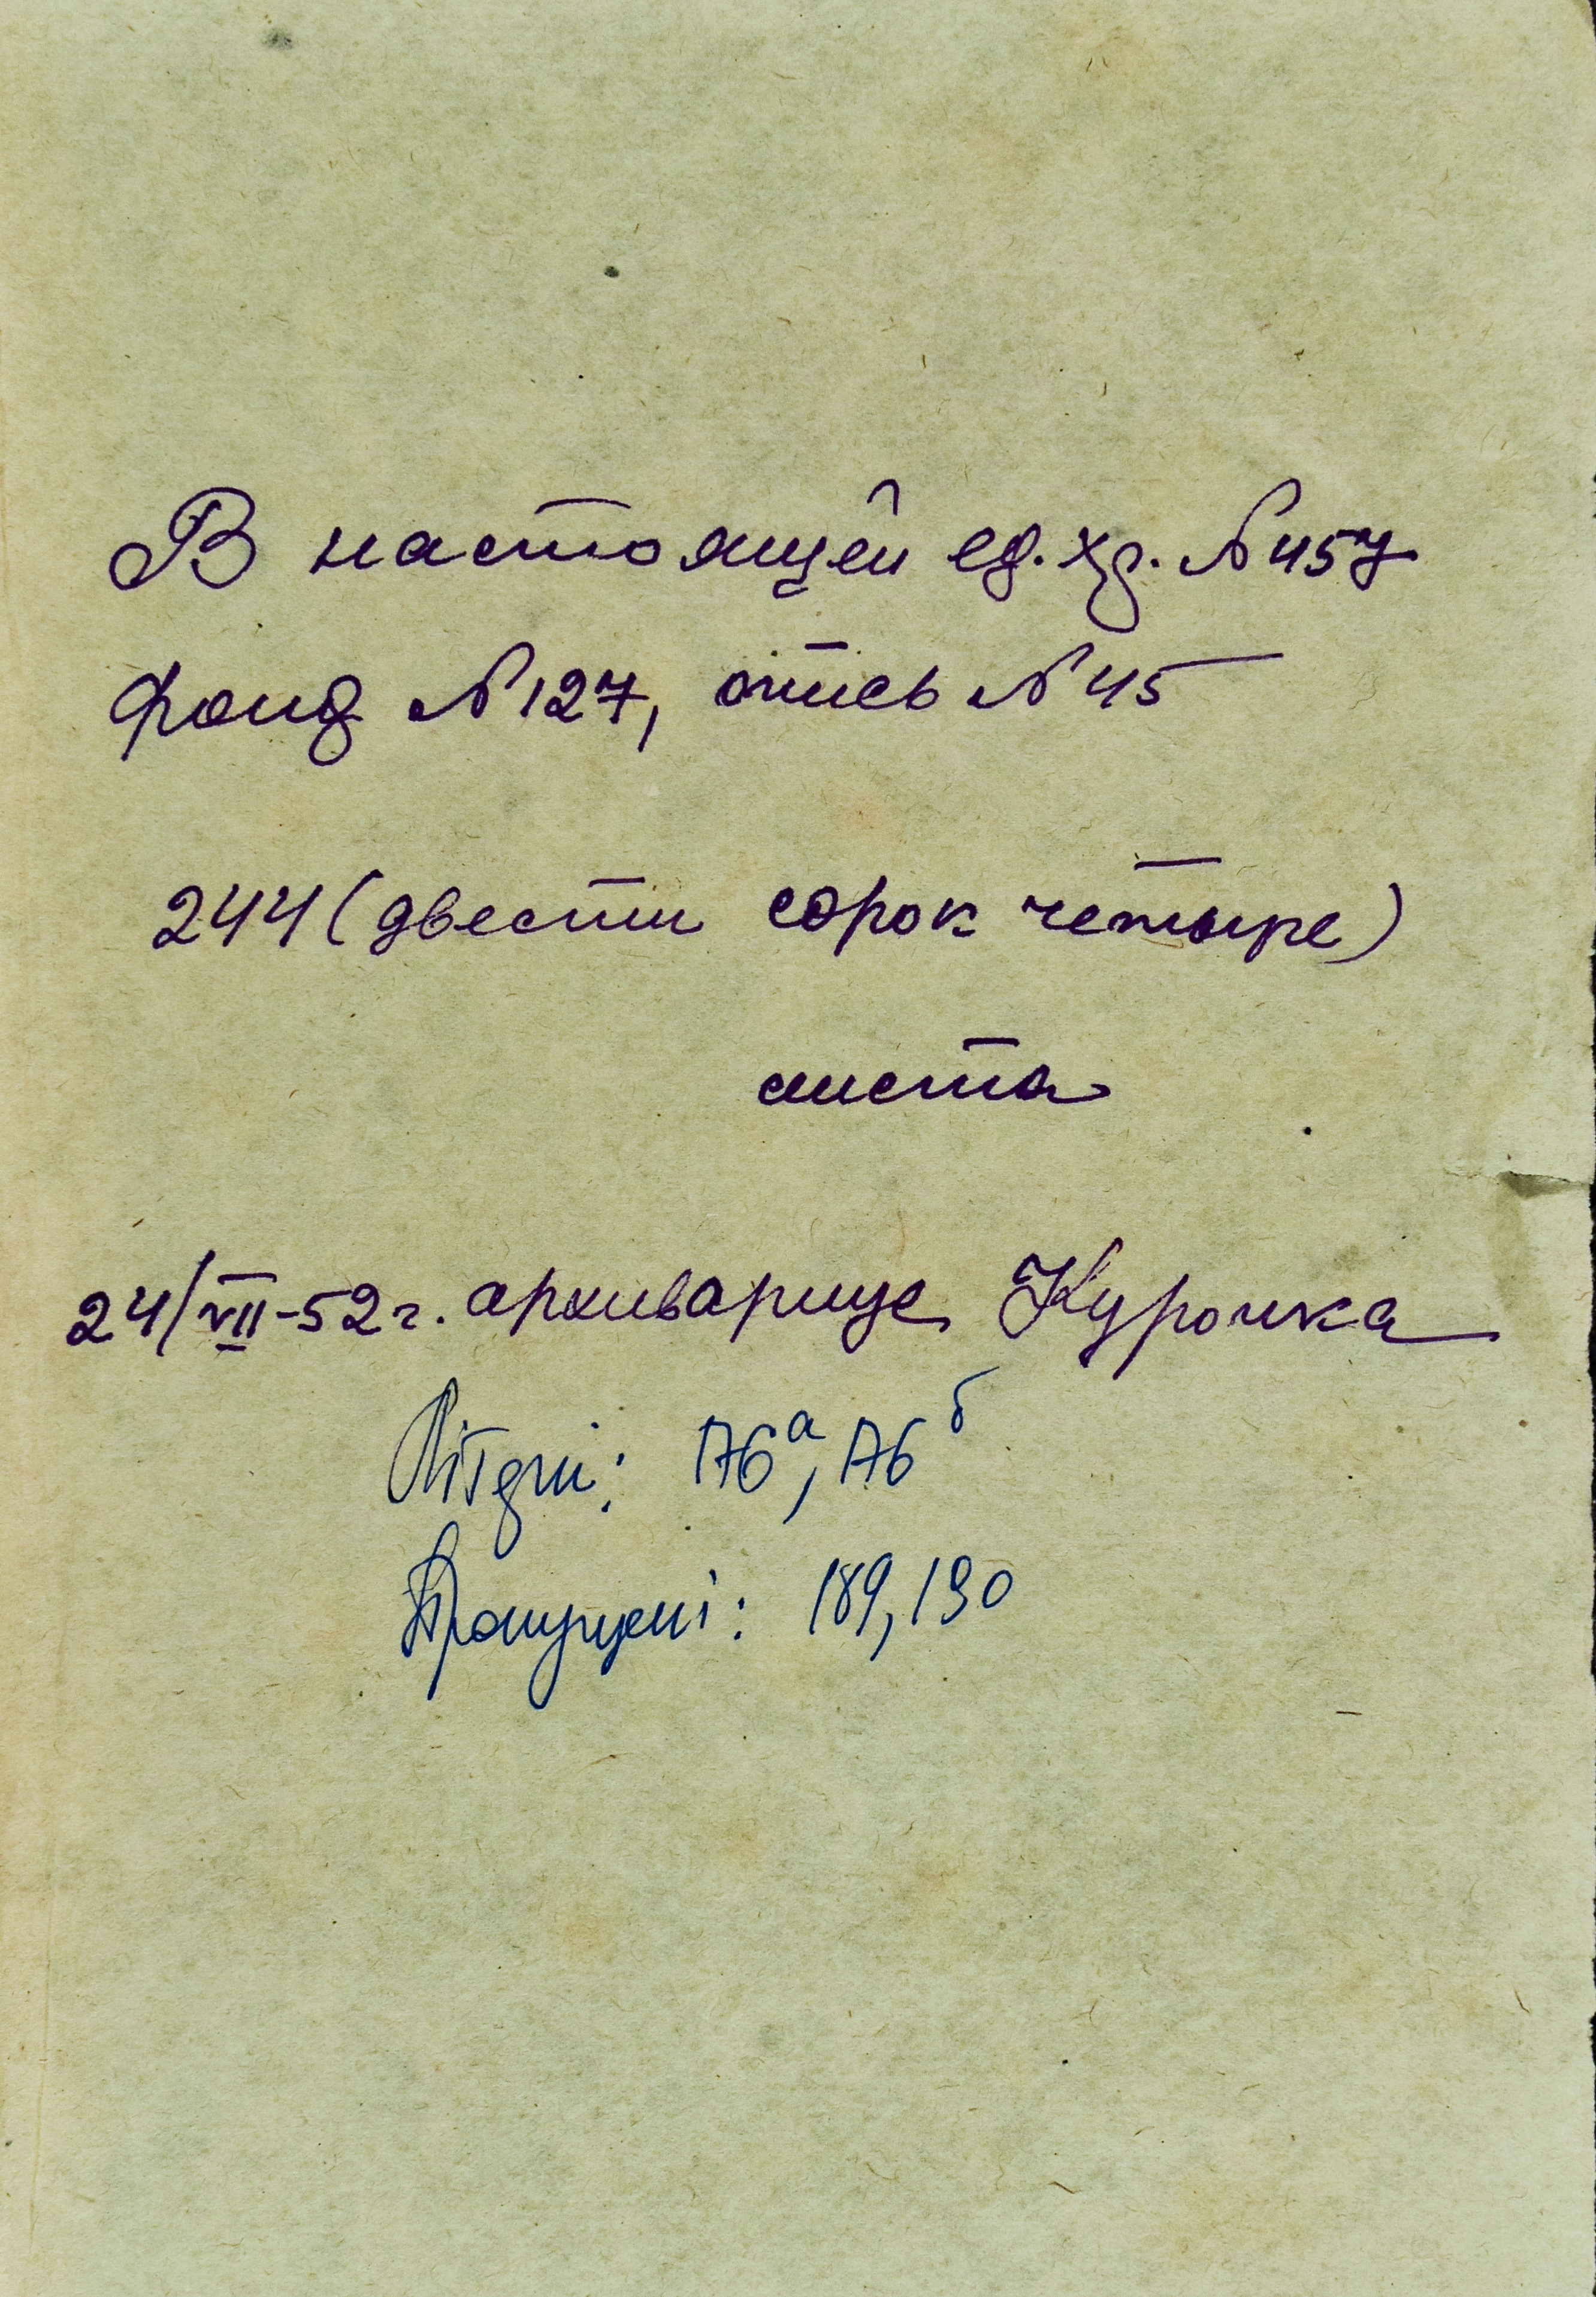 В настоящей ед. хр. № 457
фонд № 127, опись № 45
244 (двести сорок четыре)
листа
24/VII-52 г. архивариус Курочка
Літерні: 176а, 176б
Пропущені: 189, 190